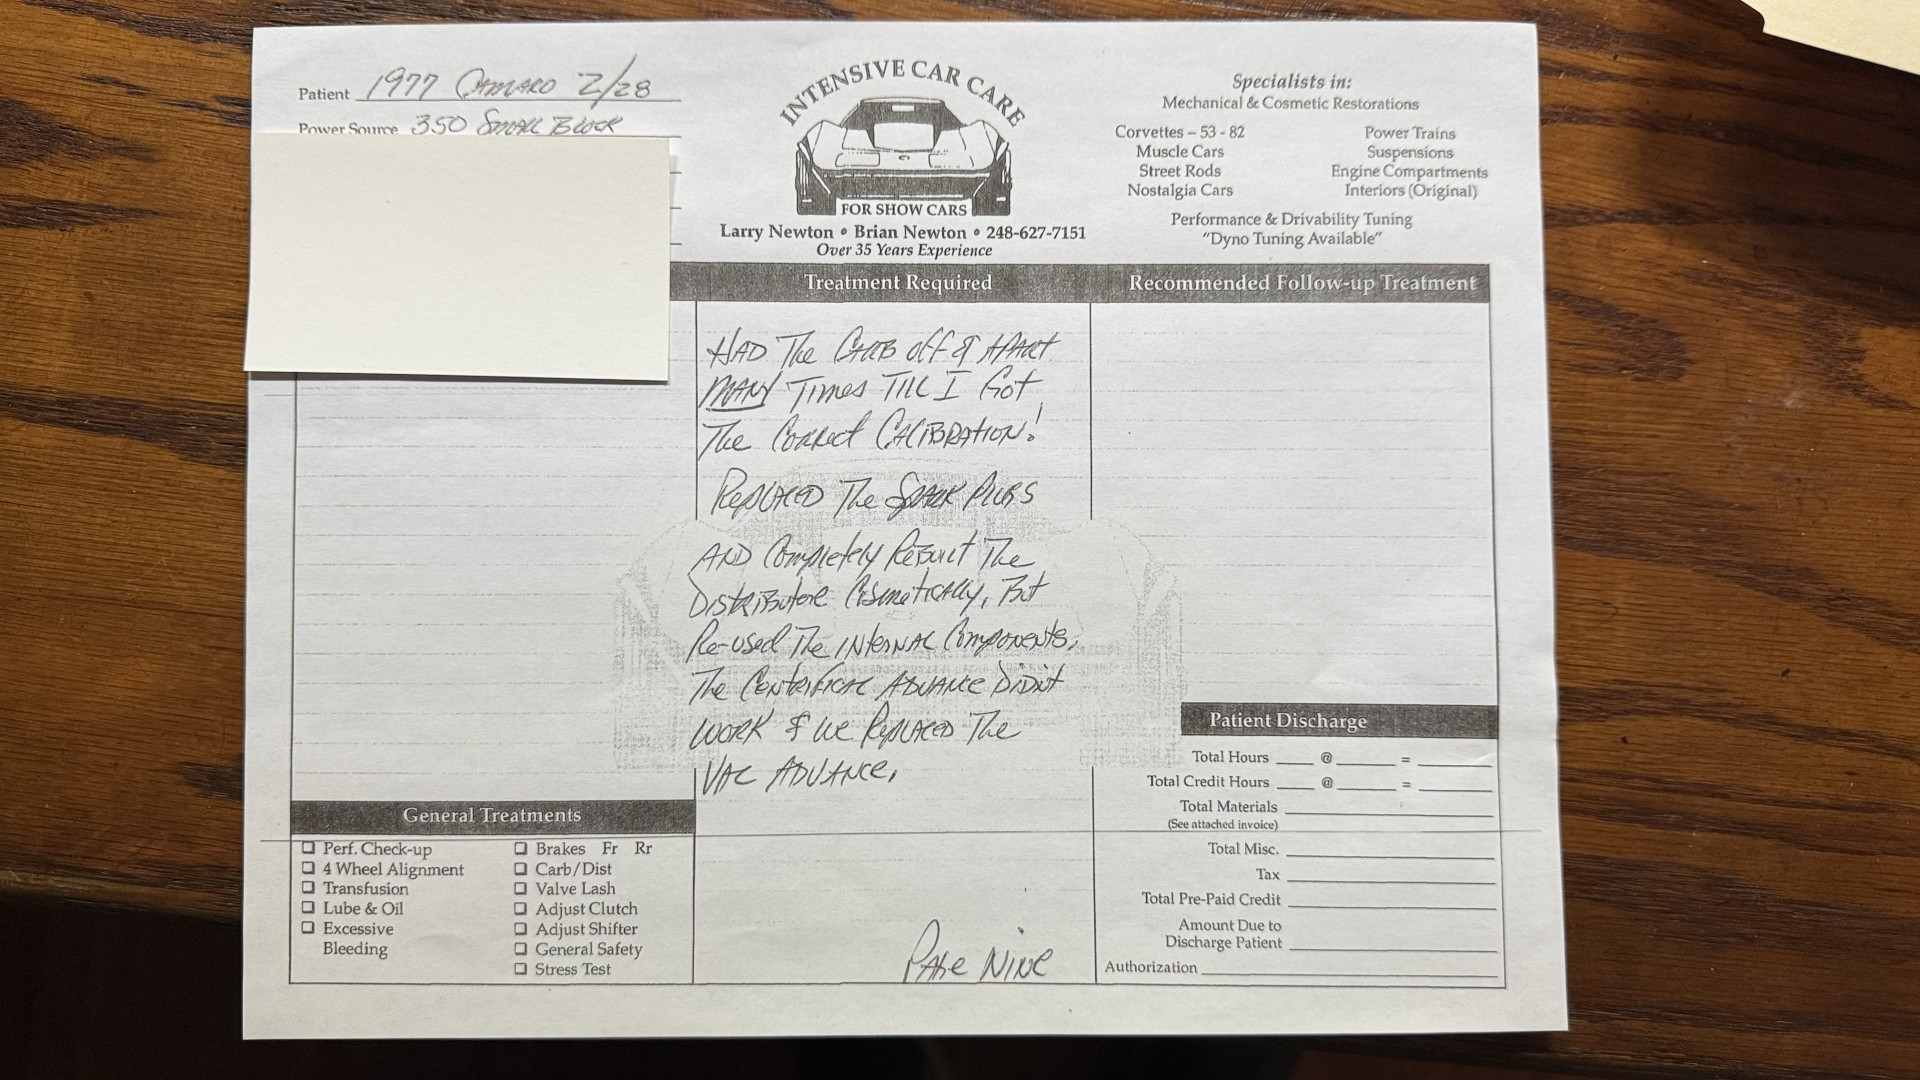 Patient 1977 CAMARO Z/28
Power Source 350 SMALL BLOCK
INTENSIVE CAR CARE
FOR SHOW CARS
Larry Newton • Brian Newton • 248-627-7151
Over 35 Years Experience
Specialists in:
Mechanical & Cosmetic Restorations
Corvettes – 53 - 82
Muscle Cars
Street Rods
Nostalgia Cars
Power Trains
Suspensions
Engine Compartments
Interiors (Original)
Performance & Drivability Tuning
"Dyno Tuning Available"
Treatment Required
HAD The CARB off & APART
MANY Times TILL I Got
The Correct CALIBRATION!
Replaced The SPARK PLUGS
AND Completely ReBuilt The
DISTRIBUTORE COSmeticAlly, But
Re-used The INTERNAL Components,
The Centrifical ADVANCE DiDN't
WORK & We Replaced The
VAC ADVANCE,
PAGE NINE
Recommended Follow-up Treatment
General Treatments
Perf. Check-up
4 Wheel Alignment
Transfusion
Lube & Oil
Excessive
Bleeding
Brakes Fr Rr
Carb/Dist
Valve Lash
Adjust Clutch
Adjust Shifter
General Safety
Stress Test
Patient Discharge
Total Hours ____ @ ____ = ____
Total Credit Hours ____ @ ____ = ____
Total Materials
(See attached invoice)
Total Misc.
Tax
Total Pre-Paid Credit
Amount Due to
Discharge Patient
Authorization